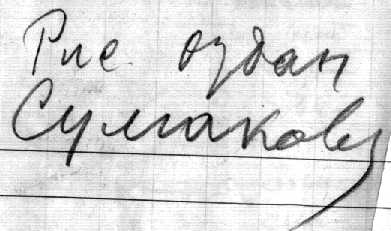 Рис отдан
Сулакову